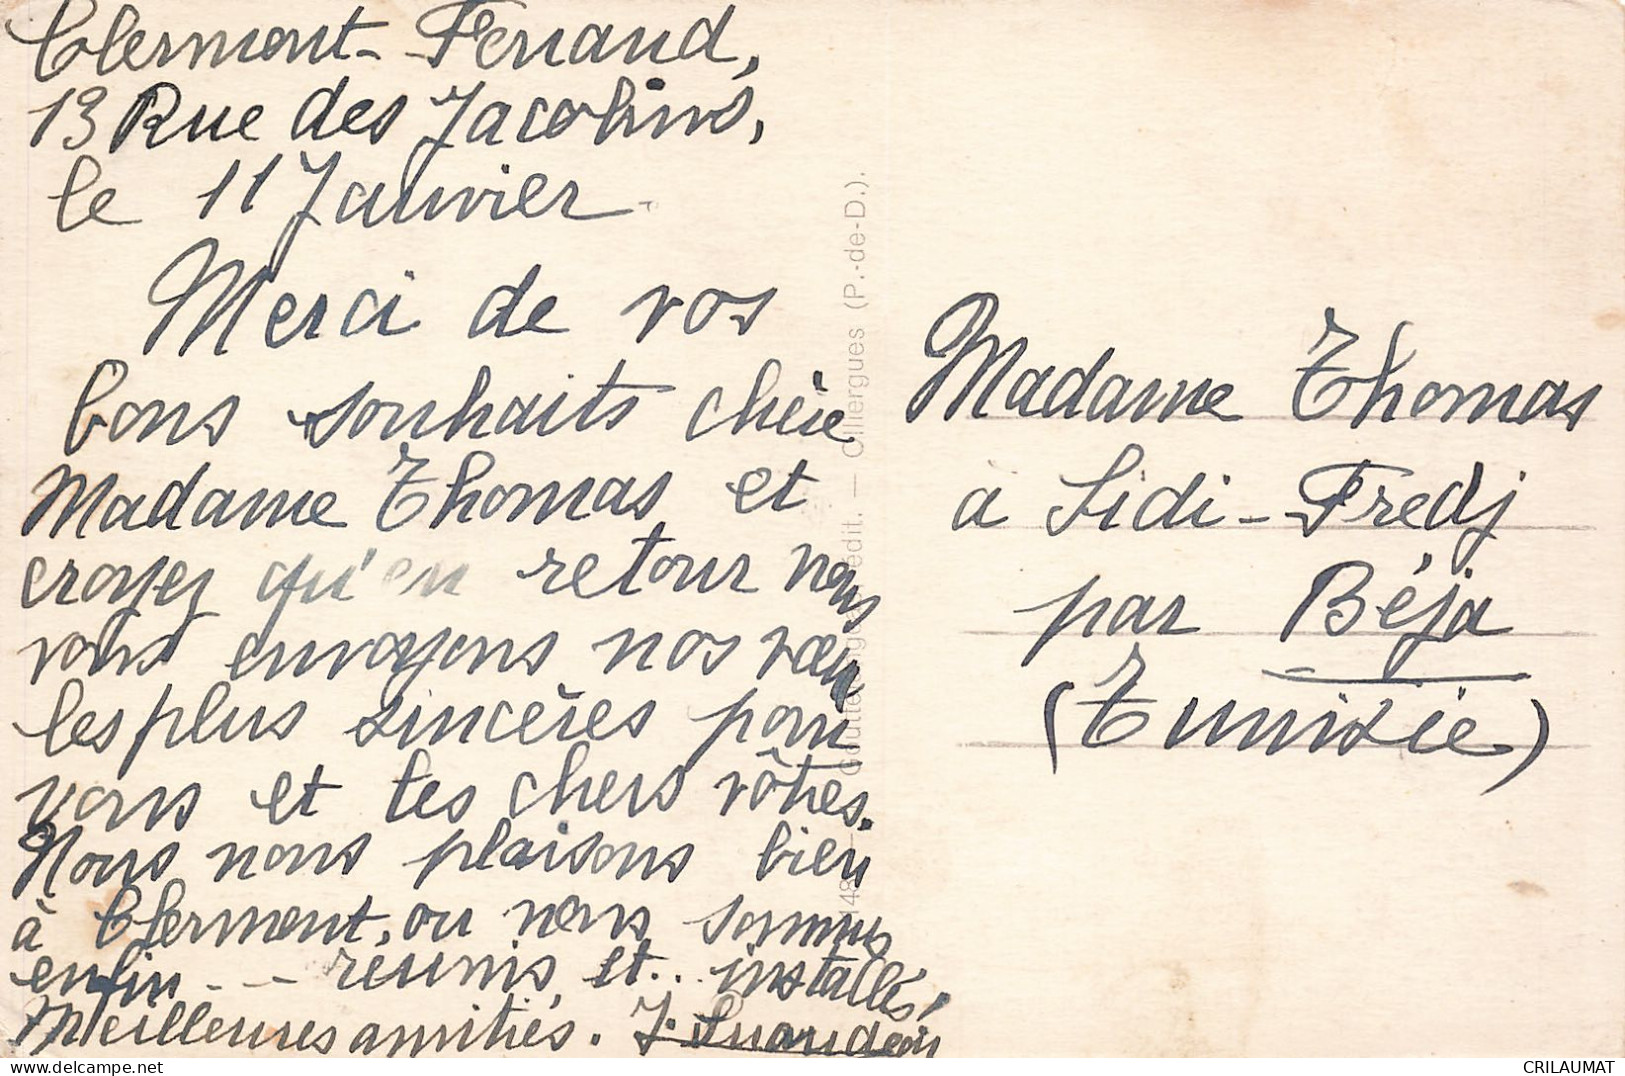 Clermont-Ferrand,
13 Rue des Jacobins,
le 11 Janvier
Merci de vos
bons souhaits chère
Madame Thomas et
croyez qu'en retour nous
vous envoyons nos vœux
les plus sincères pour
vous et les chers vôtres.
Nous nous plaisons bien
à Clermont, ou nous sommes
enfin -- réunis, et.. installés,
Meilleures amitiés. J.
édit. — Olliergues (P.-de-D.).
Madame Thomas
à Sidi-Fredj
par Béja
(Tunisie)
delcampe.net
CRILAUMAT